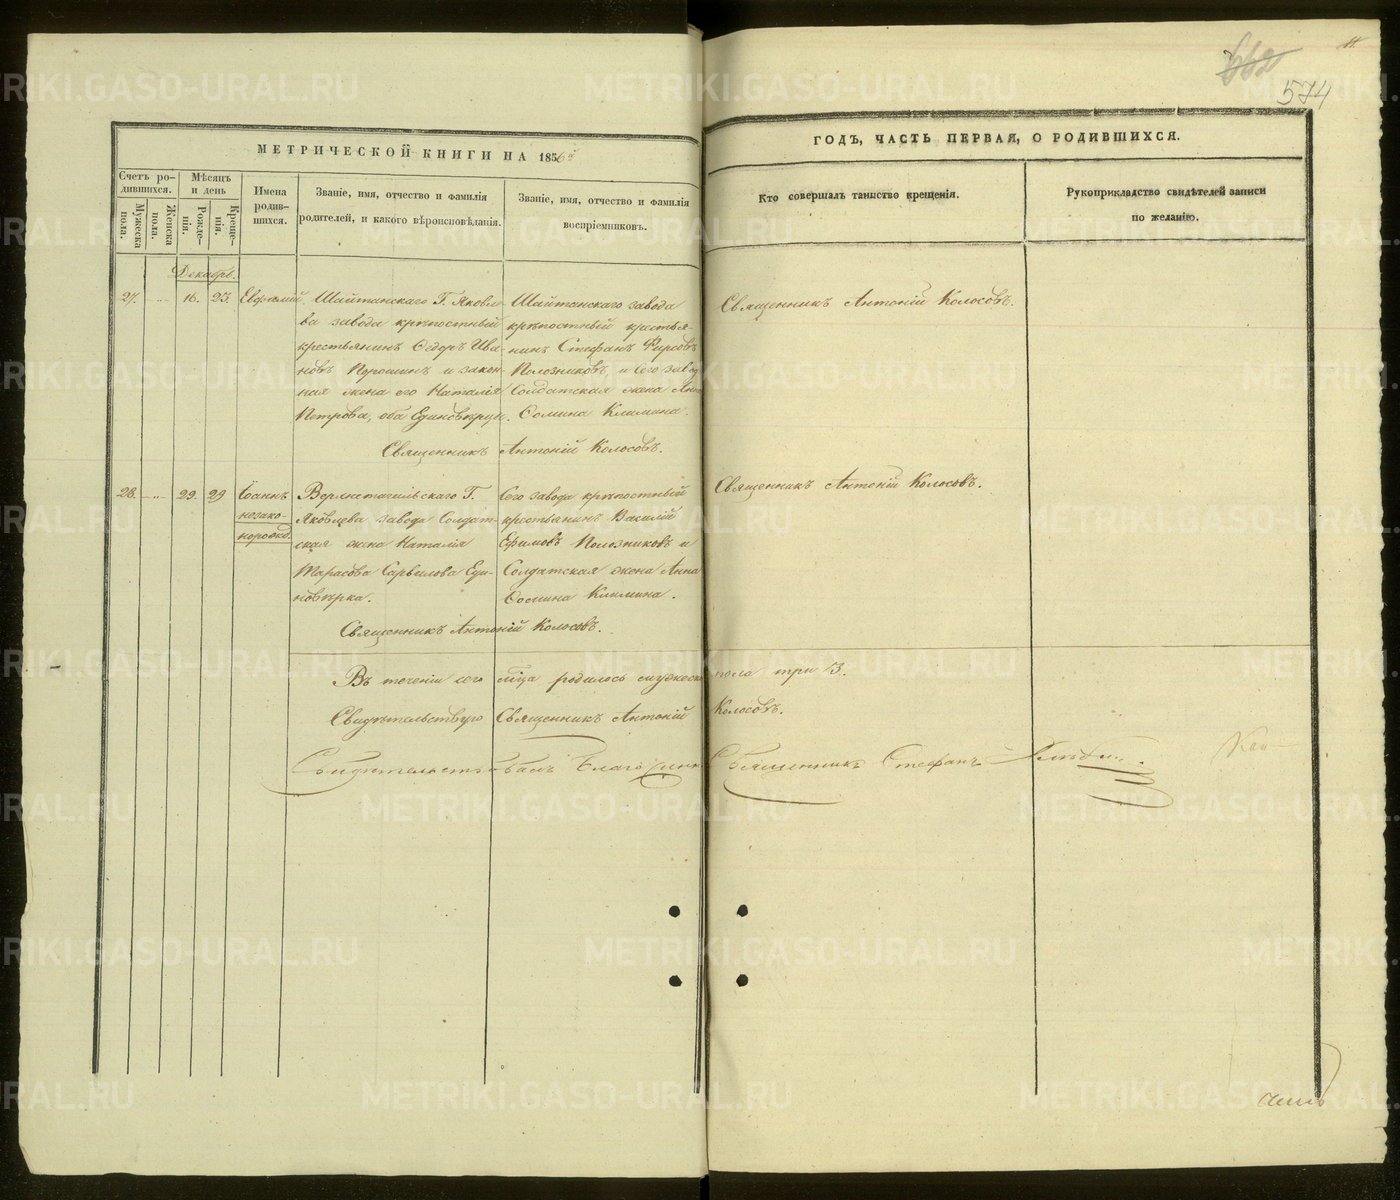 574
МЕТРИЧЕСКОЙ КНИГИ НА 185
ГОДЪ, ЧАСТЬ ПЕРВАЯ, О РОДИВШИХСЯ.
Счетъ ро-
дившихся.
Мужеска пола.
Женска пола.
Мѣсяцъ
и день
Рожде-
нія.
Креще-
нія.
Имена
родив-
шихся.
Званіе, имя, отчество и фамилія
родителей, и какого вѣроисповѣданія.
Званіе, имя, отчество и фамилія
воспріемниковъ.
Кто совершалъ таинство крещенія.
Рукоприкладство свидѣтелей записи
по желанію.
Декабрь.
27. 16. 23. Евфимій
Шайтанскаго Г. Яковле-
ва завода крѣпостный
крестьянинъ Ѳедоръ Ива-
новъ Порошинъ и закон-
ная жена его Наталія
Петрова, оба Единовѣрцы.
Шайтанскаго завода
крѣпостный крестья-
нинъ Стефанъ Фирсовъ
Полозниковъ, и Сего заво
Солдатская жена Анна
Ѳомина Климина.
Священникъ Антоній Колосовъ.
Священникъ Антоній Колосовъ.
28. 29. 29 Іоаннъ
незако-
норожд.
Верхнетагильскаго Г.
Яковлева завода Солдат-
ская жена Наталія
Тарасова Еди-
новѣрка.
Сего завода крѣпостный
крестьянинъ Василій
Ефимовъ Полозниковъ и
Солдатская жена Анна
Ѳомина Климина.
Священникъ Антоній Колосовъ.
Священникъ Антоній Колосовъ.
Въ теченіи сего мѣсяца родилось мужеска пола три 3.
Свидѣтельствую Священникъ Антоній Колосовъ.
Свидѣтельствовалъ Благочинн Священникъ Стефанъ
METRIKI.GASO-URAL.RU